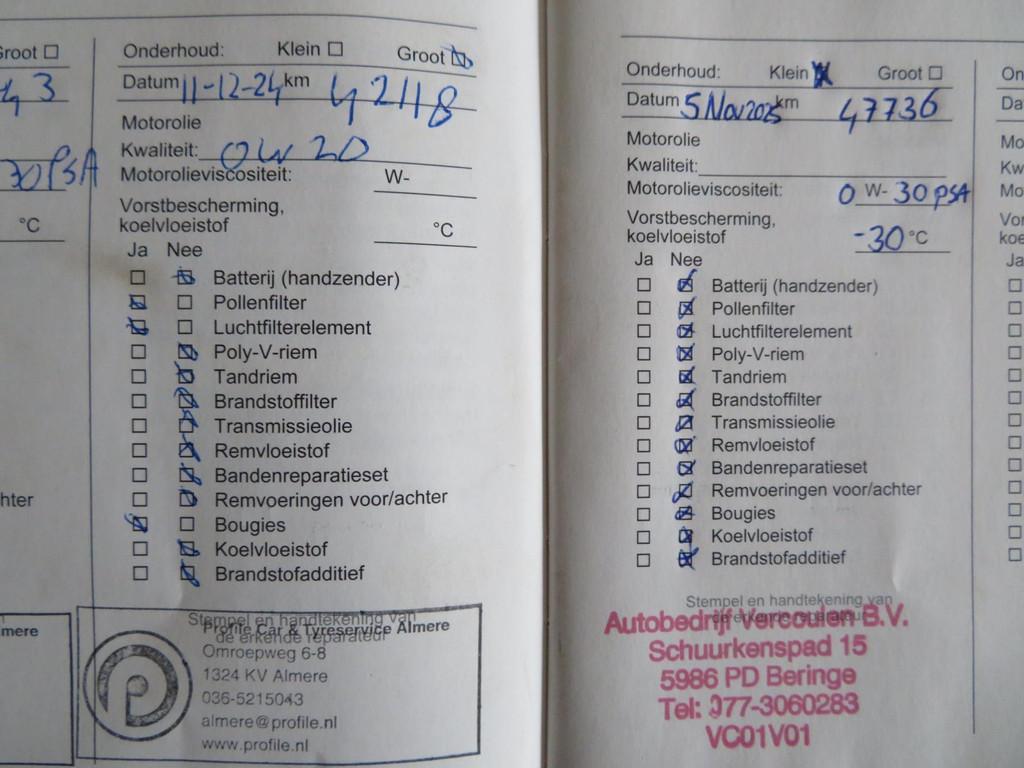 Groot
43
30 PSA
°C
hter
mere
Onderhoud: Klein Groot
Datum 11-12-24 km 42118
Motorolie
Kwaliteit: 0W20
Motorolieviscositeit: W-
Vorstbescherming,
koelvloeistof °C
Ja Nee
Batterij (handzender)
Pollenfilter
Luchtfilterelement
Poly-V-riem
Tandriem
Brandstoffilter
Transmissieolie
Remvloeistof
Bandenreparatieset
Remvoeringen voor/achter
Bougies
Koelvloeistof
Brandstofadditief
Stempel en handtekening van
de erkende reparateur
Profile Car & Tyreservice Almere
Omroepweg 6-8
1324 KV Almere
036-5215043
almere@profile.nl
www.profile.nl
Onderhoud: Klein Groot
Datum 5 Nov 2025 km 47736
Motorolie
Kwaliteit:
Motorolieviscositeit: 0 W- 30 PSA
Vorstbescherming,
koelvloeistof -30 °C
Ja Nee
Batterij (handzender)
Pollenfilter
Luchtfilterelement
Poly-V-riem
Tandriem
Brandstoffilter
Transmissieolie
Remvloeistof
Bandenreparatieset
Remvoeringen voor/achter
Bougies
Koelvloeistof
Brandstofadditief
Stempel en handtekening van
de erkende reparateur
Autobedrijf B.V.
Schuurkenspad 15
5986 PD Beringe
Tel: 077-3060283
VC01V01
On
Da
Mo
Kw
Mo
Vor
koe
Ja